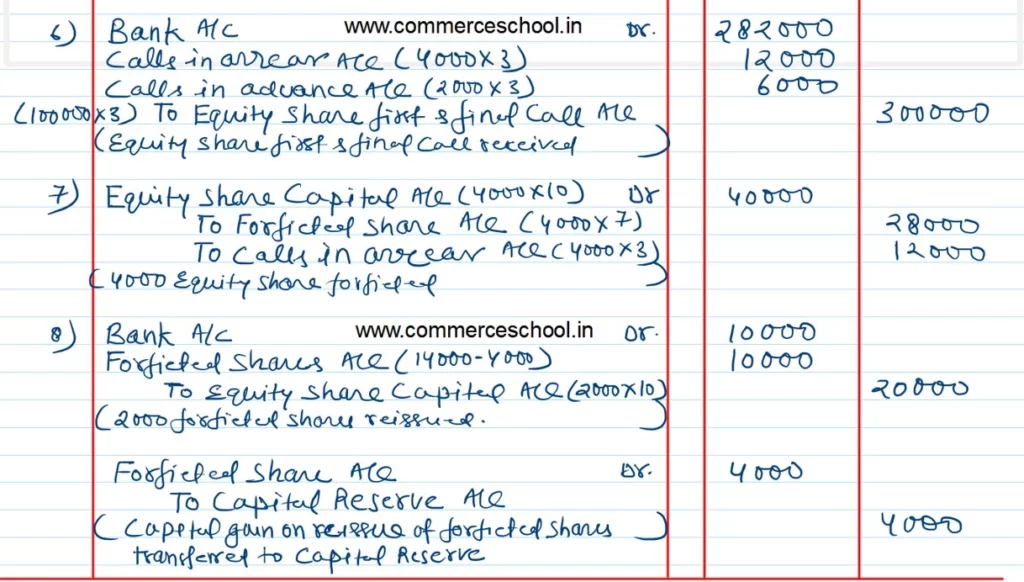 6) Bank A/c www.commerceschool.in Dr. 282000
Calls in arrear A/c (4000×3) 12000
Calls in advance A/c (2000×3) 6000
(100000×3) To Equity Share first & final Call A/c 300000
(Equity share first & final call received)
7) Equity Share Capital A/c (4000×10) Dr 40000
To Forficted share A/c (4000×7) 28000
To Calls in arrear A/c (4000×3) 12000
(4000 Equity share forficted)
8) Bank A/c www.commerceschool.in Dr. 10000
Forficted Shares A/c (14000-4000) 10000
To Equity Share Capital A/c (2000×10) 20000
(2000 forficted shares reissued.)
Forficted Share A/c Dr. 4000
To Capital Reserve A/c
(Capital gain on reissue of forficted shares) 4000
transferred to Capital Reserve